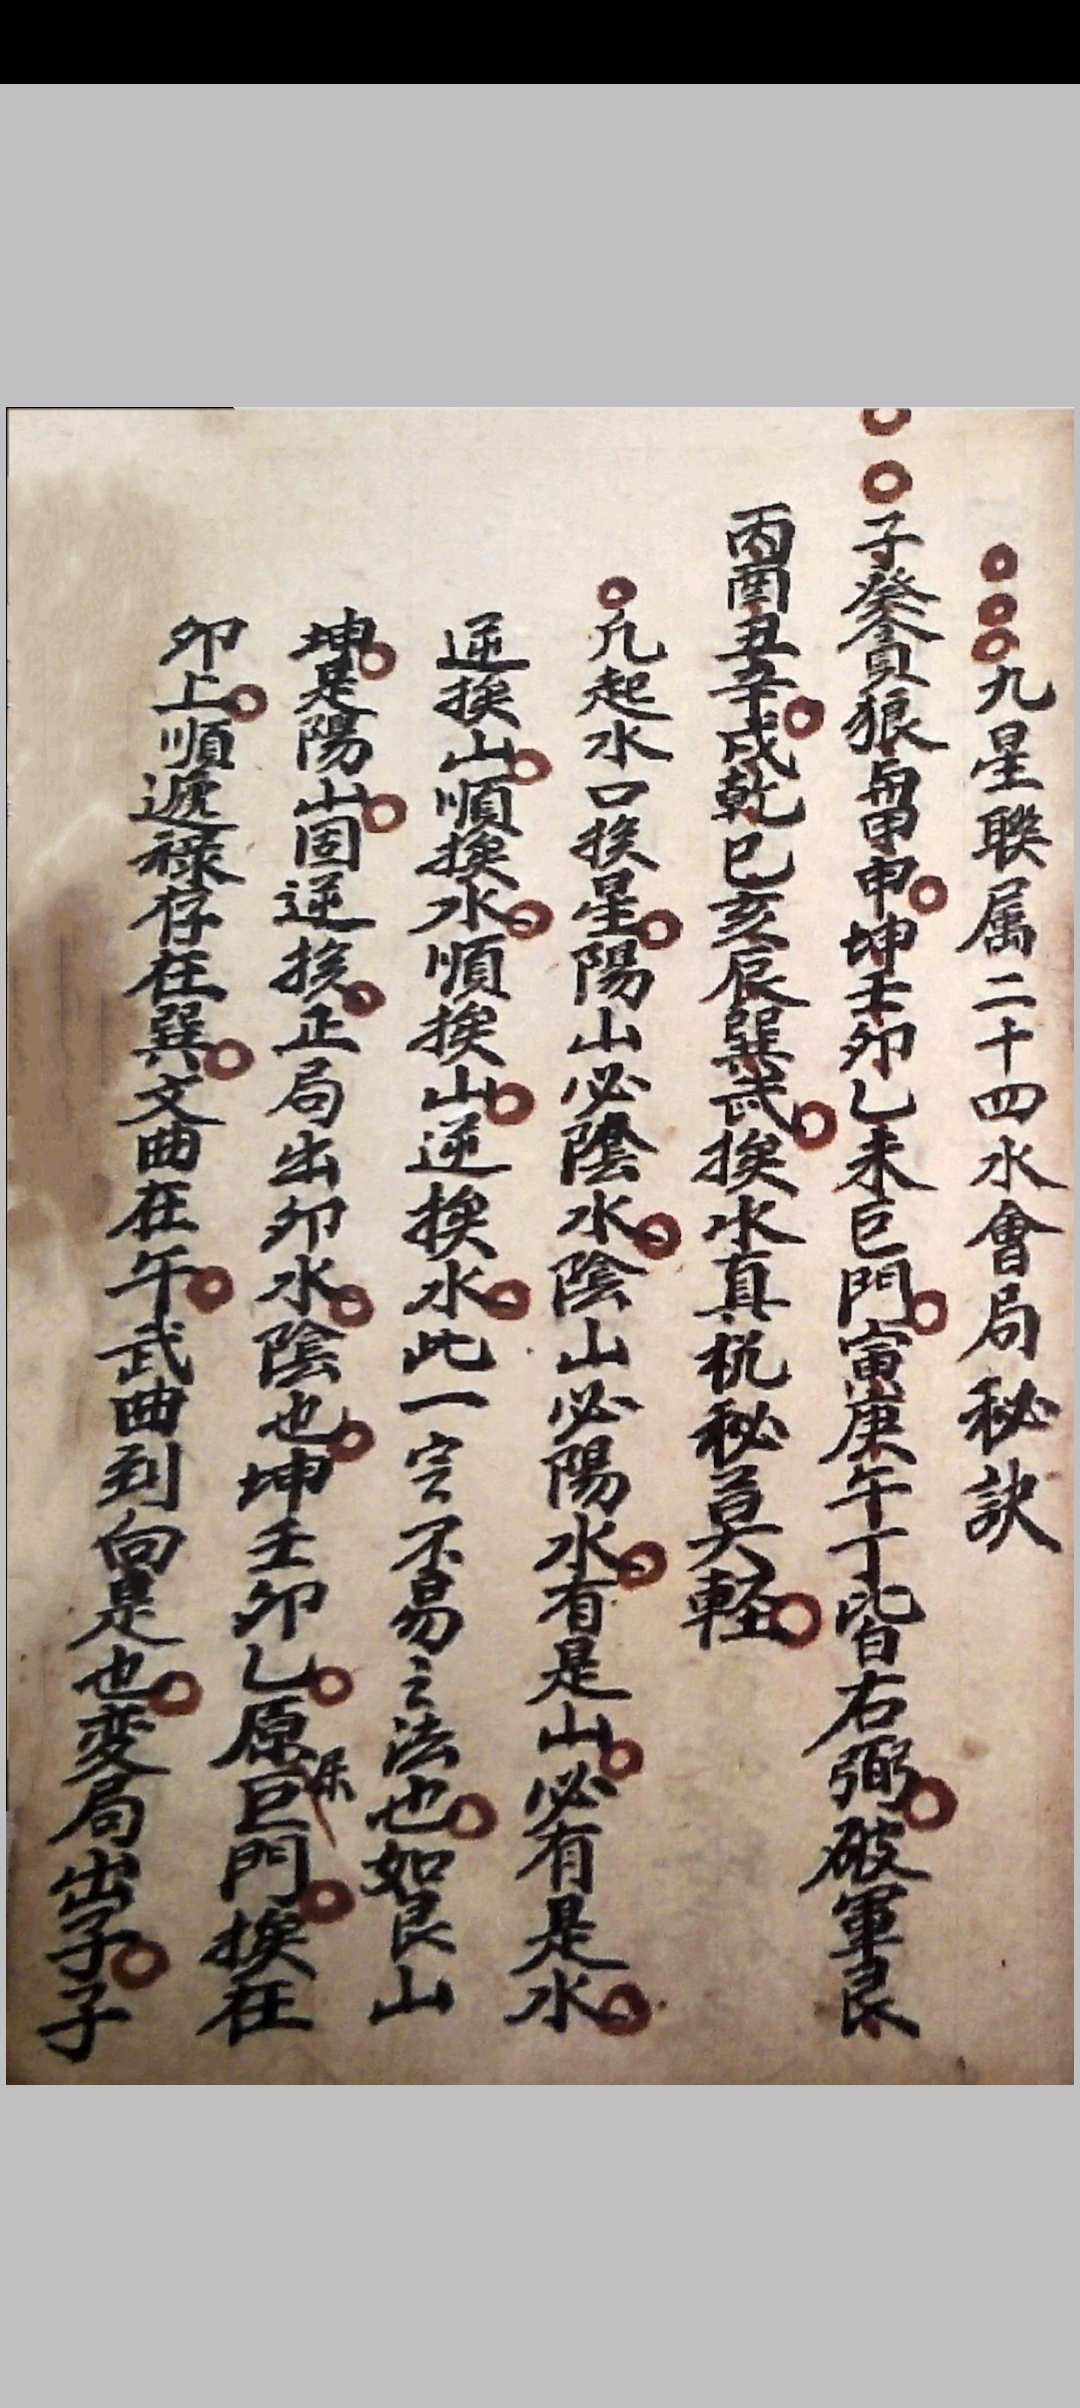 九星聯属二十四水會局秘訣
子癸貪狼與甲申坤壬卯乙未巨門寅庚午丁皆右弼破軍艮
丙酉丑辛戌乾巳亥辰巽武挨水真机秘莫輕
凢起水口挨星陽山必陰水陰山必陽水有是山必有是水
逆挨山順挨水順挨山逆挨水此一定不易之法也如艮山
坤是陽山固逆挨正局出卯水陰也坤壬卯乙原係巨門挨在
卯上順遞祿存在巽文曲在午武曲到向是也変局出子子